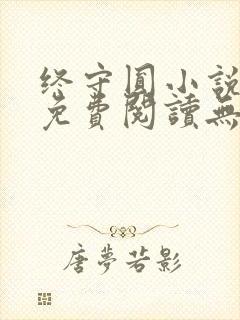 终守圆小說
免費閱讀無
唐夢若影